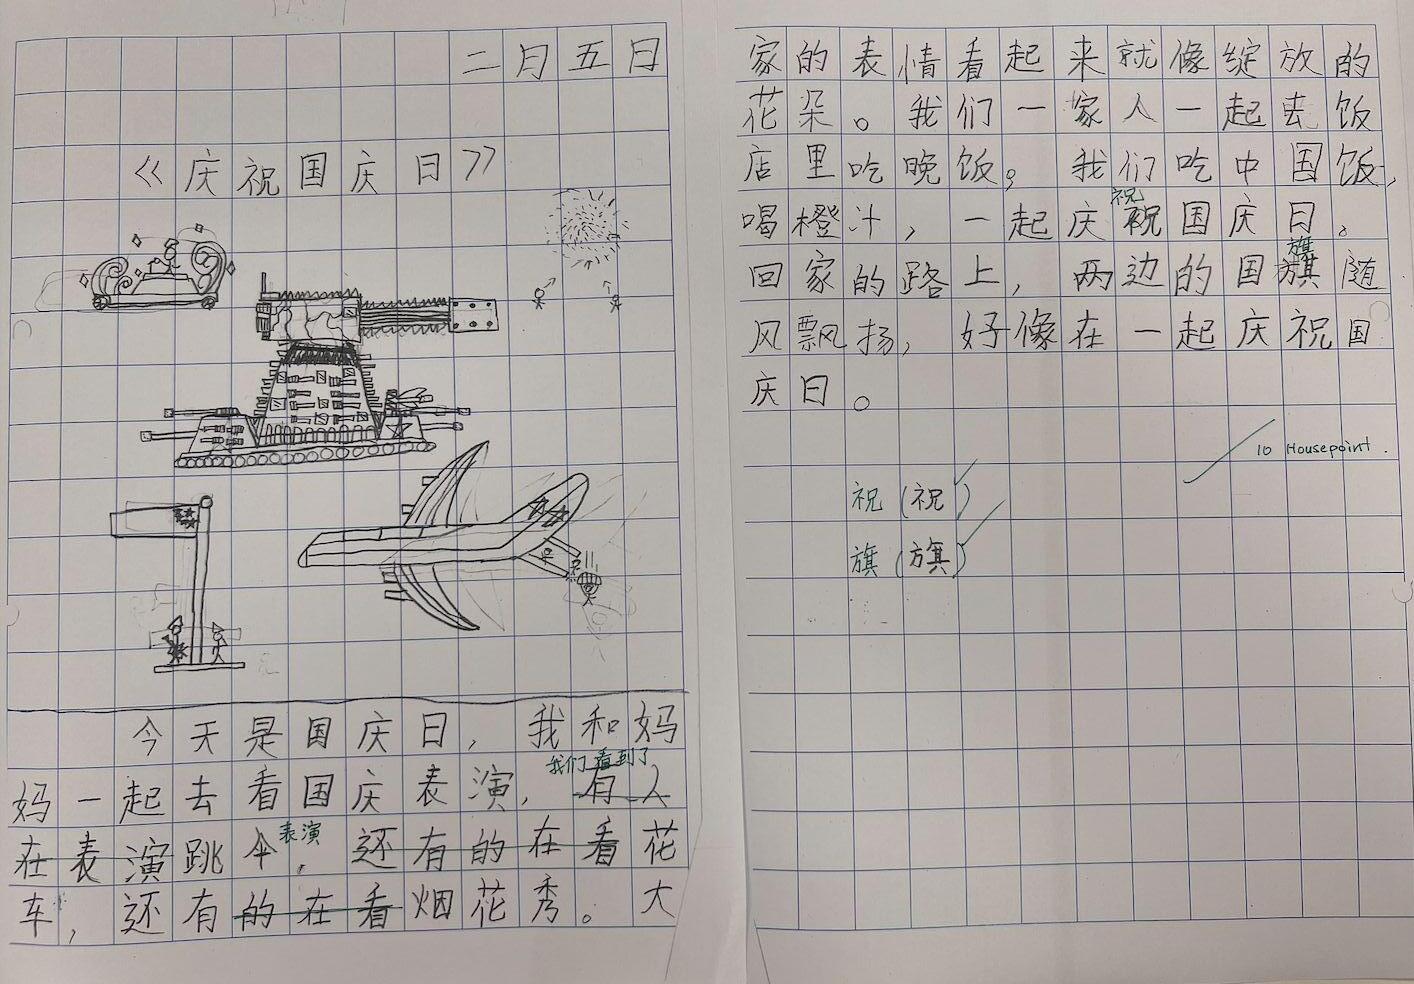 二月五日
《庆祝国庆日》
今天是国庆日，我和妈
我们看到了
妈一起去看国庆表演，有人
表演
在表演跳伞，还有的在看花
车，还有的在看烟花秀。大
家的表情看起来就像绽放的
花朵。我们一家人一起去饭
店里吃晚饭。我们吃中国饭，
祝
喝橙汁，一起庆祝国庆日。
旗
回家的路上，两边的国旗随
风飘扬，好像在一起庆祝国
庆日。
10 Housepoint.
祝（祝）
旗（旗）